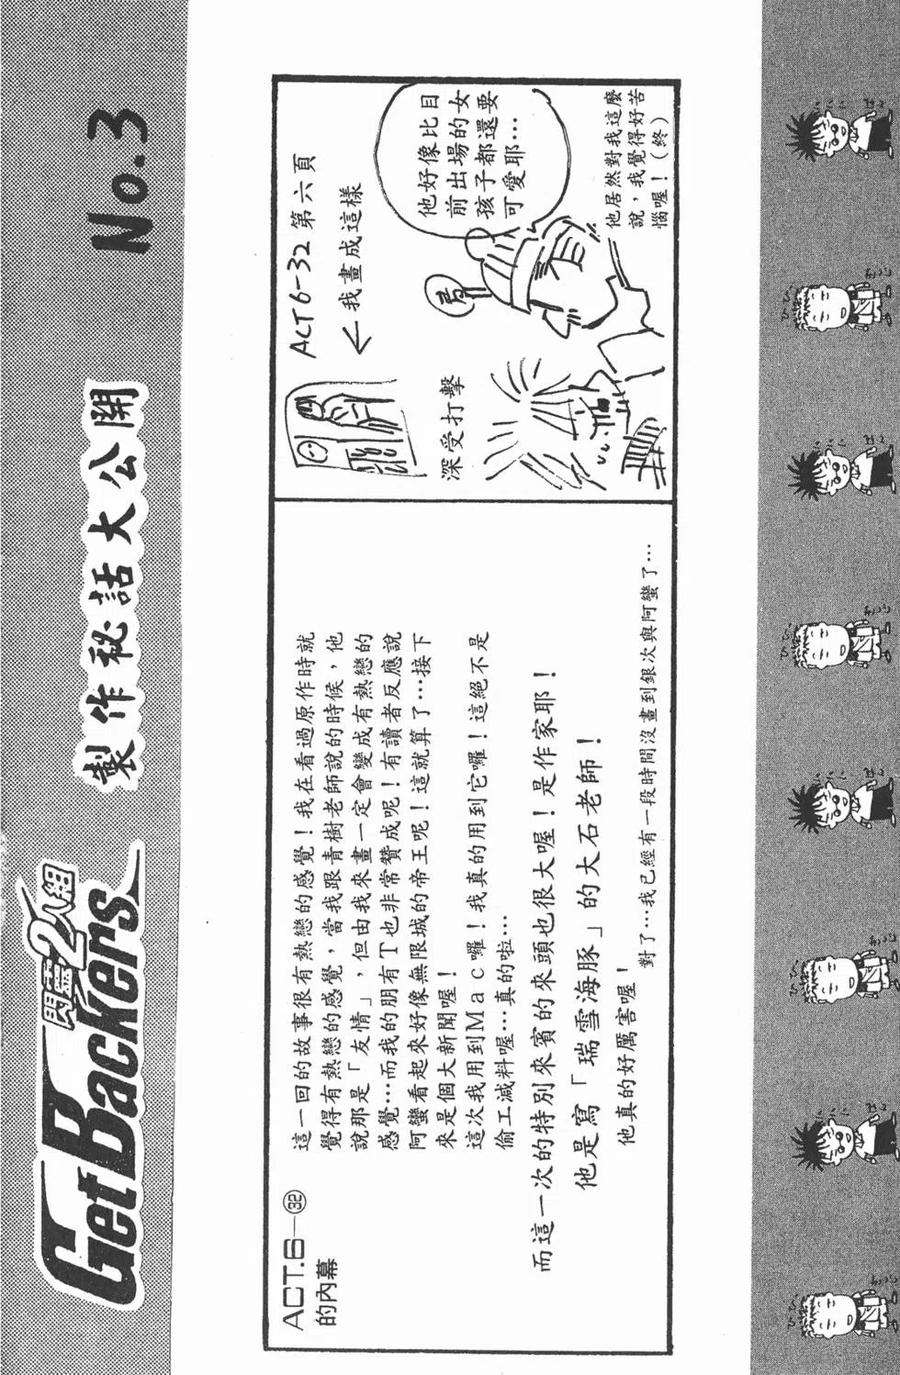 GetBackers
閃靈2人組
製作秘話大公開
No.3
ACT.6—㉜
的內幕
這一回的故事很有熱戀的感覺！我在看過原作時就
覺得有熱戀的感覺，當我跟青樹老師說的時候，他
說那是「友情」，但由我來畫一定會變成有熱戀的
感覺…而我的朋有T也非常贊成呢！有讀者反應說
阿蠻看起來好像無限城的帝王呢！這就算了…接下
來是個大新聞喔！
這次我用到Mac囉！我真的用到它囉！這絕不是
偷工減料喔…真的啦…
而這一次的特別來賓的來頭也很大喔！是作家耶！
他是寫「瑞雪海豚」的大石老師！
他真的好厲害喔！
對了…我已經有一段時間沒畫到銀次與阿蠻了…
ACT6-32第六頁
←我畫成這樣
深受打擊
他好像比目
前出場的女
孩子都還要
可愛耶…
他居然對我這麼
說，我覺得好苦
惱喔！（終）